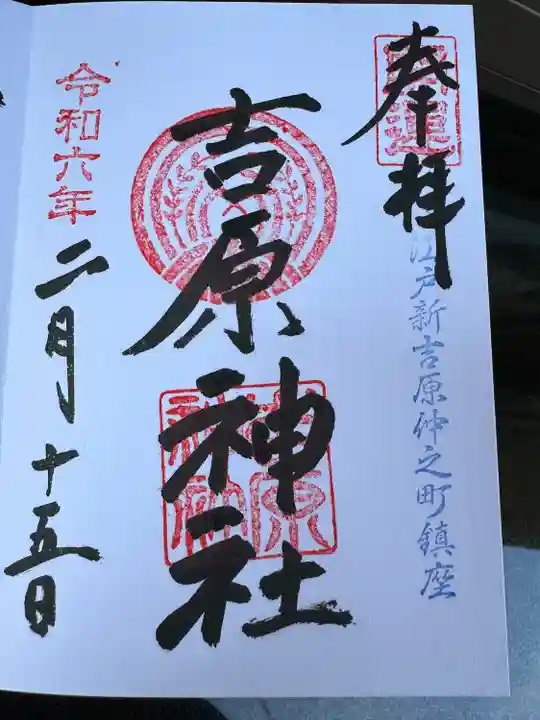 奉拝
開運
江戸新吉原仲之町鎮座
吉原神社
吉原神社
令和六年
二月十五日